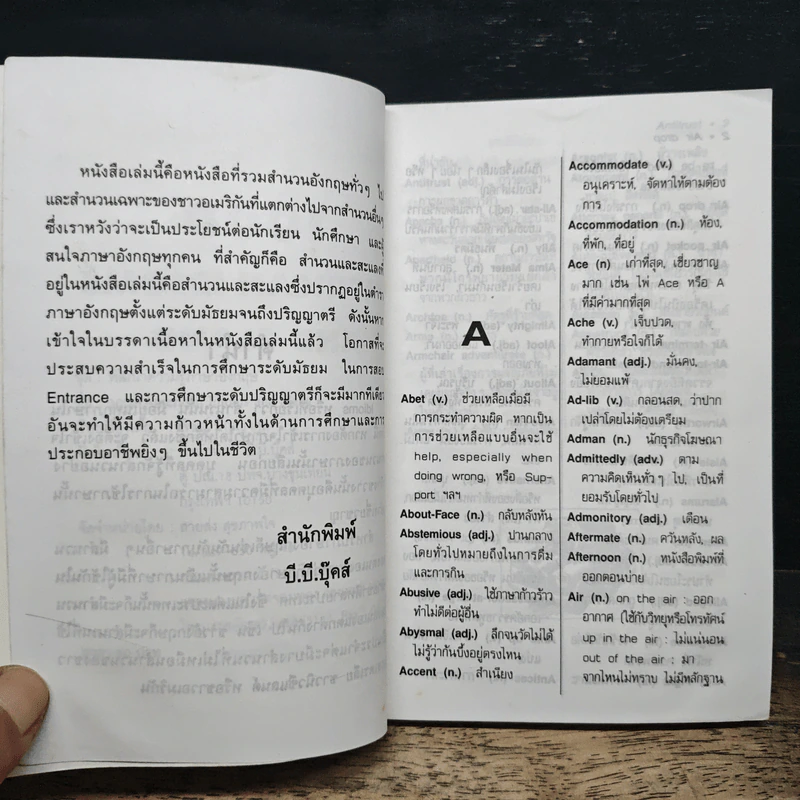 หนังสือเล่มนี้คือหนังสือที่รวมสำนวนอังกฤษทั่วๆ ไป
และสำนวนเฉพาะของชาวอเมริกันที่แตกต่างไปจากสำนวนอื่นๆ
ซึ่งเราหวังว่าจะเป็นประโยชน์ต่อนักเรียน นักศึกษา และผู้
สนใจภาษาอังกฤษทุกคน ที่สำคัญก็คือ สำนวนและสะแลงที่
อยู่ในหนังสือเล่มนี้คือสำนวนและสะแลงซึ่งปรากฏอยู่ในตำรา
ภาษาอังกฤษตั้งแต่ระดับมัธยมจนถึงปริญญาตรี ดังนั้นหาก
เข้าใจในบรรดาเนื้อหาในหนังสือเล่มนี้แล้ว โอกาสที่จะ
ประสบความสำเร็จในการศึกษาระดับมัธยม ในการสอบ
Entrance และการศึกษาระดับปริญญาตรีก็จะมีมากทีเดียว
อันจะทำให้มีความก้าวหน้าทั้งในด้านการศึกษาและการ
ประกอบอาชีพยิ่งๆ ขึ้นไปในชีวิต
สำนักพิมพ์
บี.บี.บุ๊คส์
A
Abet (v.) ช่วยเหลือเมื่อมี
การกระทำความผิด หากเป็น
การช่วยเหลือแบบอื่นจะใช้
help, especially when
doing wrong, หรือ Sup-
port ฯลฯ
About-Face (n.) กลับหลังหัน
Abstemious (adj.) ปานกลาง
โดยทั่วไปหมายถึงในการดื่ม
และการกิน
Abusive (adj.) ใช้ภาษาก้าวร้าว
ทำไม่ดีต่อผู้อื่น
Abysmal (adj.) ลึกจนวัดไม่ได้
ไม่รู้ว่ากันบึ้งอยู่ตรงไหน
Accent (n.) สำเนียง
Accommodate (v.)
อนุเคราะห์, จัดหาให้ตามต้อง
การ
Accommodation (n.) ห้อง,
ที่พัก, ที่อยู่
Ace (n) เก่าที่สุด, เชี่ยวชาญ
มาก เช่น ไพ่ Ace หรือ A
ที่มีค่ามากที่สุด
Ache (v.) เจ็บปวด,
ทำกายหรือใจก็ได้
Adamant (adj.) มั่นคง,
ไม่ยอมแพ้
Ad-lib (v.) กลอนสด, ว่าปาก
เปล่าโดยไม่ต้องเตรียม
Adman (n.) นักธุรกิจโฆษณา
Admittedly (adv.) ตาม
ความคิดเห็นทั่วๆ ไป, เป็นที่
ยอมรับโดยทั่วไป
Admonitory (adj.) เตือน
Aftermate (n.) ควันหลัง, ผล
Afternoon (n.) หนังสือพิมพ์ที่
ออกตอนบ่าย
Air (n.) on the air : ออก
อากาศ (ใช้กับวิทยุหรือโทรทัศน์
up in the air : ไม่แน่นอน
out of the air : มา
จากไหนไม่ทราบ ไม่มีหลักฐาน